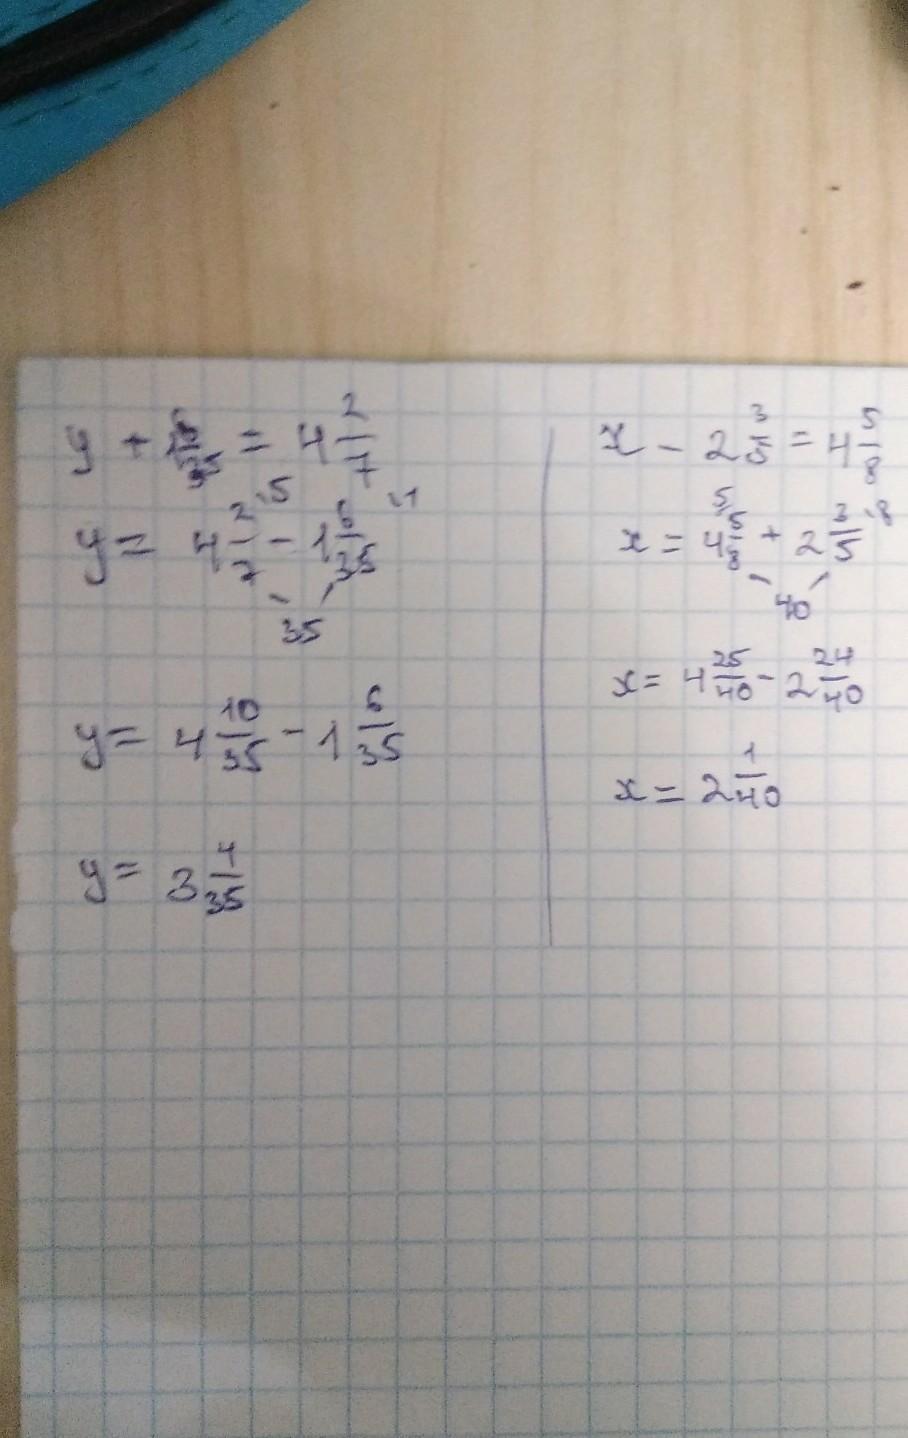 y + 1 6/35 = 4 2/7
y = 4 2/7 \5 - 1 6/35 \1
35
y = 4 10/35 - 1 6/35
y = 3 4/35
x - 2 3/5 = 4 5/8
x = 4 5/8 \5 + 2 3/5 \8
40
x = 4 25/40 - 2 24/40
x = 2 1/40